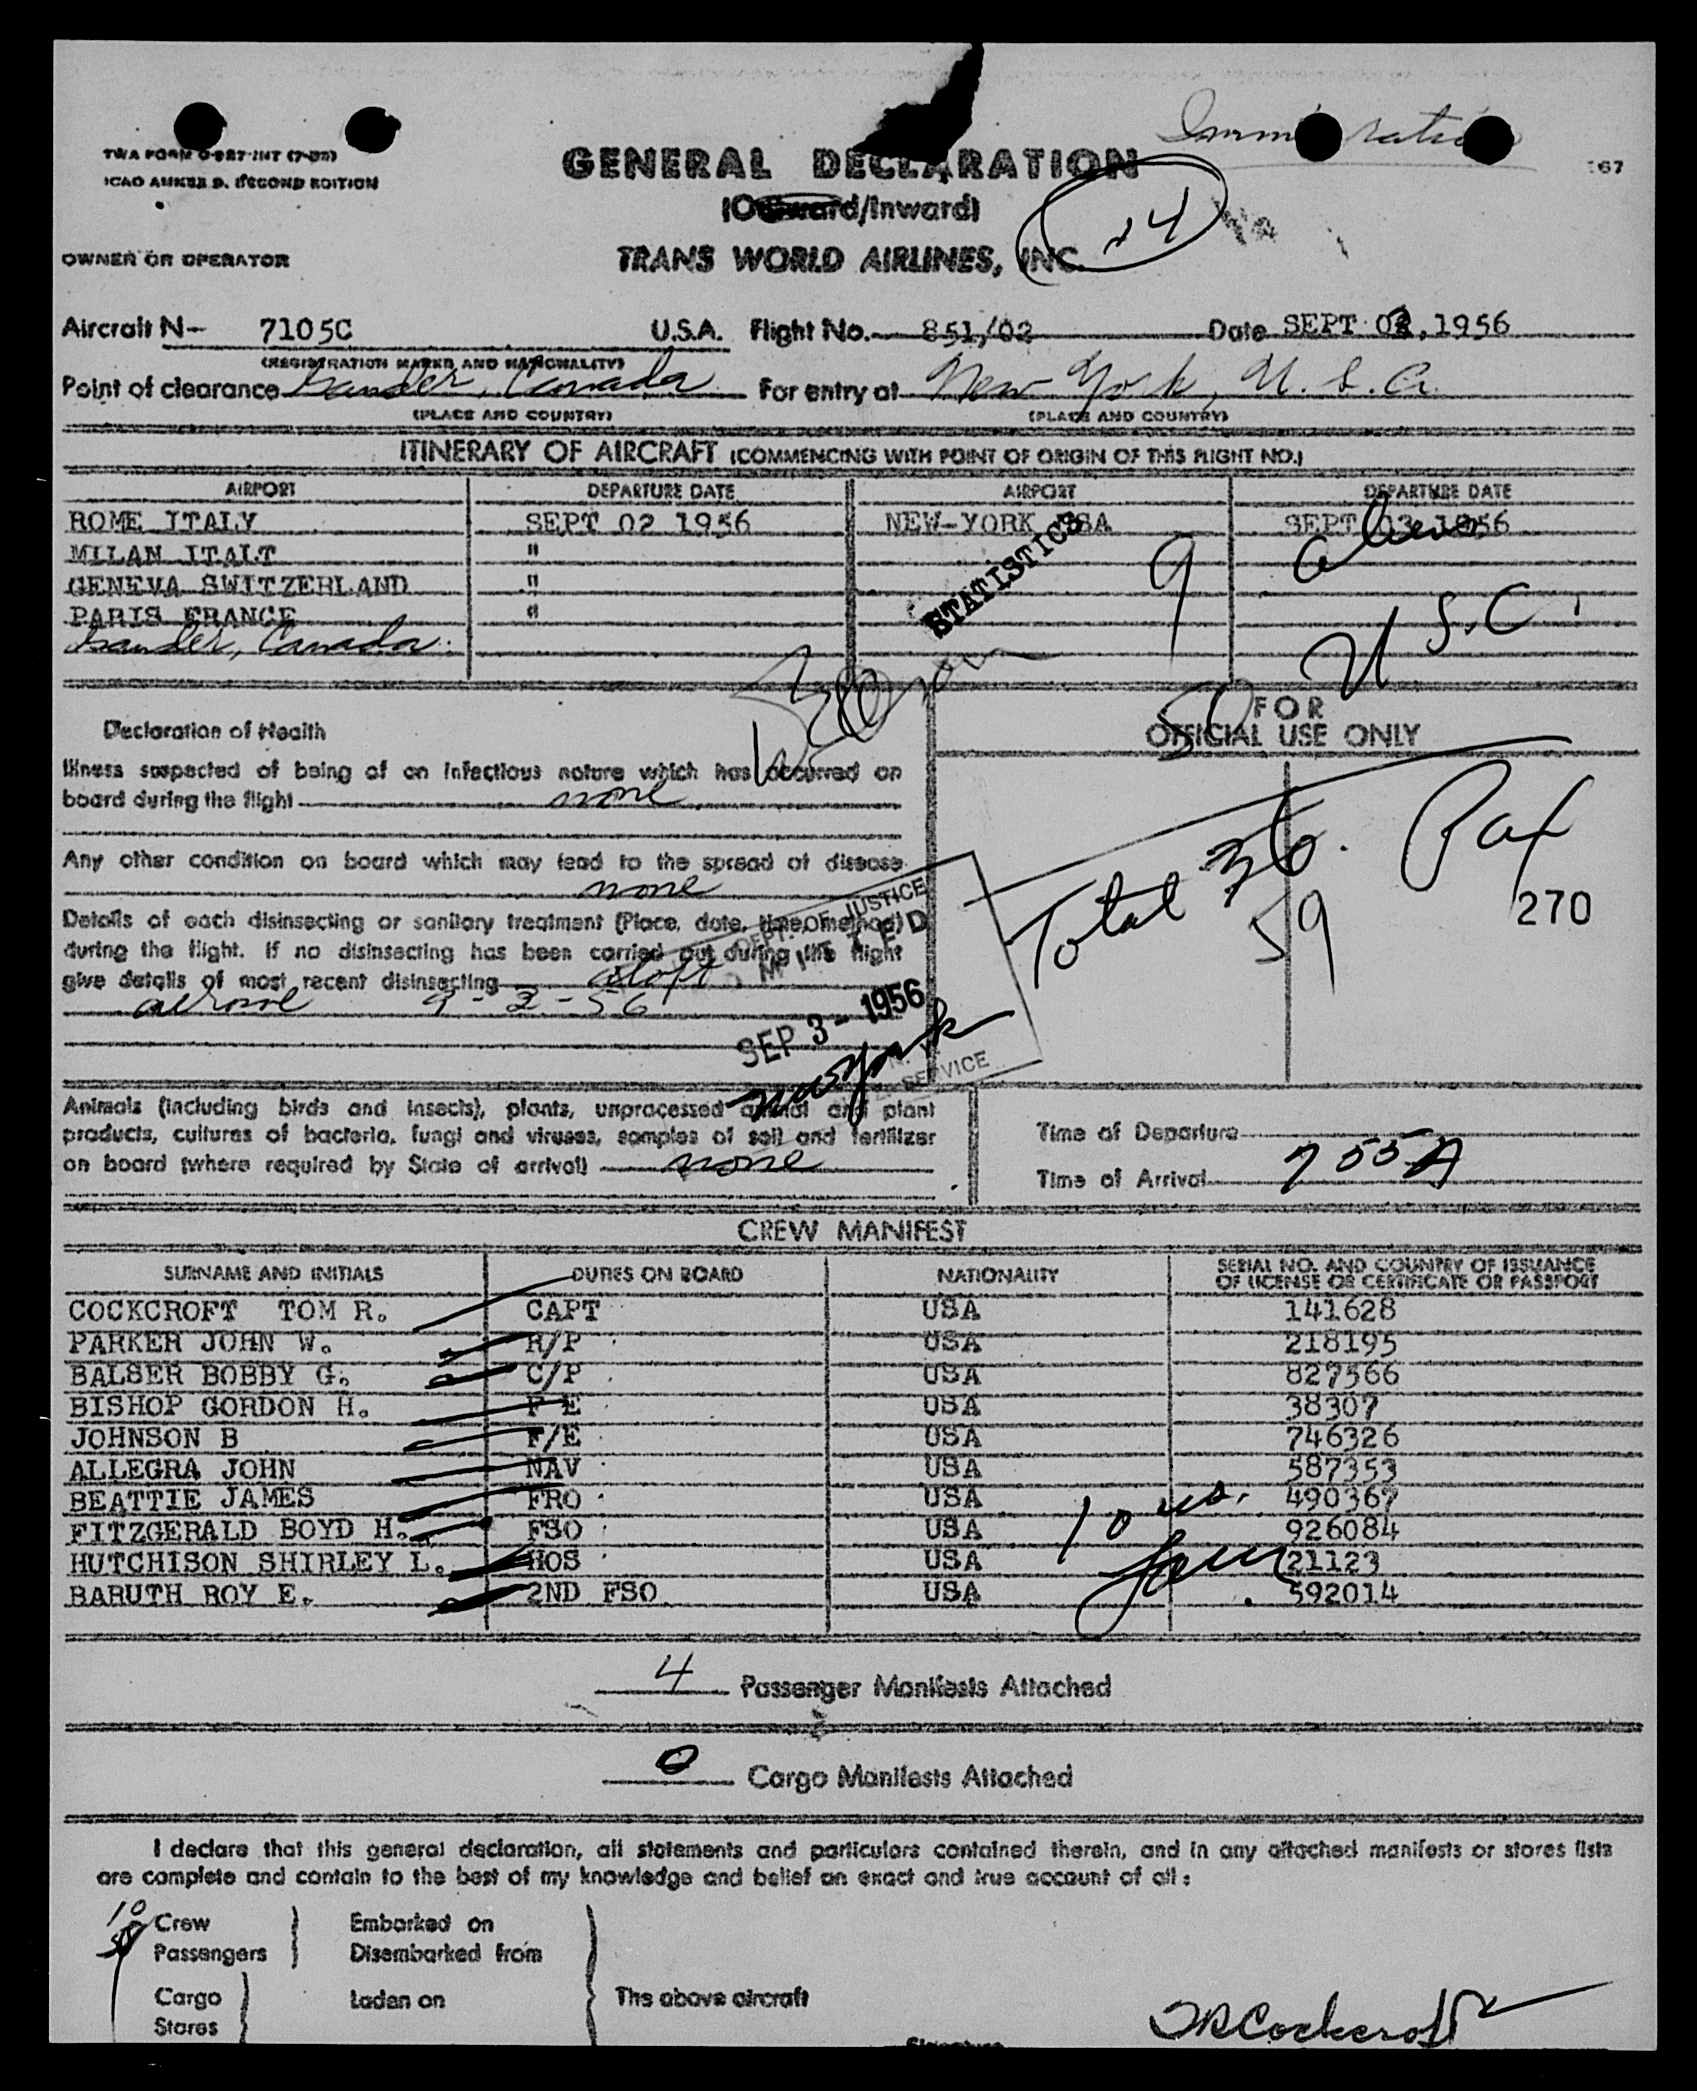 TWA FORM O-927-INT
ICAO ANNEX 9, SECOND EDITION
Immigration
GENERAL DECLARATION
(Outward/Inward)
24
67
OWNER OR OPERATOR
TRANS WORLD AIRLINES, INC.
Aircraft N- 7105C U.S.A. Flight No. 851/02 Date SEPT 02, 1956
(REGISTRATION MARKS AND NATIONALITY)
Point of clearance Gander, Canada For entry at New York, U.S.A.
(PLACE AND COUNTRY) (PLACE AND COUNTRY)
ITINERARY OF AIRCRAFT (COMMENCING WITH POINT OF ORIGIN OF THIS FLIGHT NO.)
AIRPORT DEPARTURE DATE AIRPORT DEPARTURE DATE
ROME ITALY SEPT 02 1956 NEW-YORK USA SEPT 03 1956
MILAN ITALT "
GENEVA SWITZERLAND "
PARIS FRANCE "
Gander, Canada
STATISTICS
9 aliens
50 U S.C.
FOR
OFFICIAL USE ONLY
Total 59 Pax
270
Declaration of Health
Illness suspected of being of an infectious nature which has occurred on
board during the flight none
Any other condition on board which may lead to the spread of disease
none
Details of each disinsecting or sanitary treatment (Place, date, time, method)
during the flight. If no disinsecting has been carried out during the flight
give details of most recent disinsecting aloft
9-2-56
DEPT. OF JUSTICE
ADMITTED
SEP 3 - 1956
New York
N. Y.
SERVICE
Animals (including birds and insects), plants, unprocessed animal and plant
products, cultures of bacteria, fungi and viruses, samples of soil and fertilizer
on board (where required by State of arrival) none
Time of Departure
Time of Arrival 755A
CREW MANIFEST
SURNAME AND INITIALS DUTIES ON BOARD NATIONALITY SERIAL NO. AND COUNTRY OF ISSUANCE
OF LICENSE OR CERTIFICATE OR PASSPORT
COCKCROFT TOM R. CAPT USA 141628
PARKER JOHN W. R/P USA 218195
BALSER BOBBY G. C/P USA 827566
BISHOP GORDON H. F E USA 38307
JOHNSON B F/E USA 746326
ALLEGRA JOHN NAV USA 587353
BEATTIE JAMES FRO USA 490367
FITZGERALD BOYD H. FSO USA 926084
HUTCHISON SHIRLEY L. HOS USA 21123
BARUTH ROY E. 2ND FSO USA 592014
10 us.
4 Passenger Manifests Attached
0 Cargo Manifests Attached
I declare that this general declaration, all statements and particulars contained therein, and in any attached manifests or stores lists
are complete and contain to the best of my knowledge and belief an exact and true account of all:
10 Crew Embarked on
Passengers Disembarked from
Cargo Laden on The above aircraft
Stores
TR Cockcroft
Signature